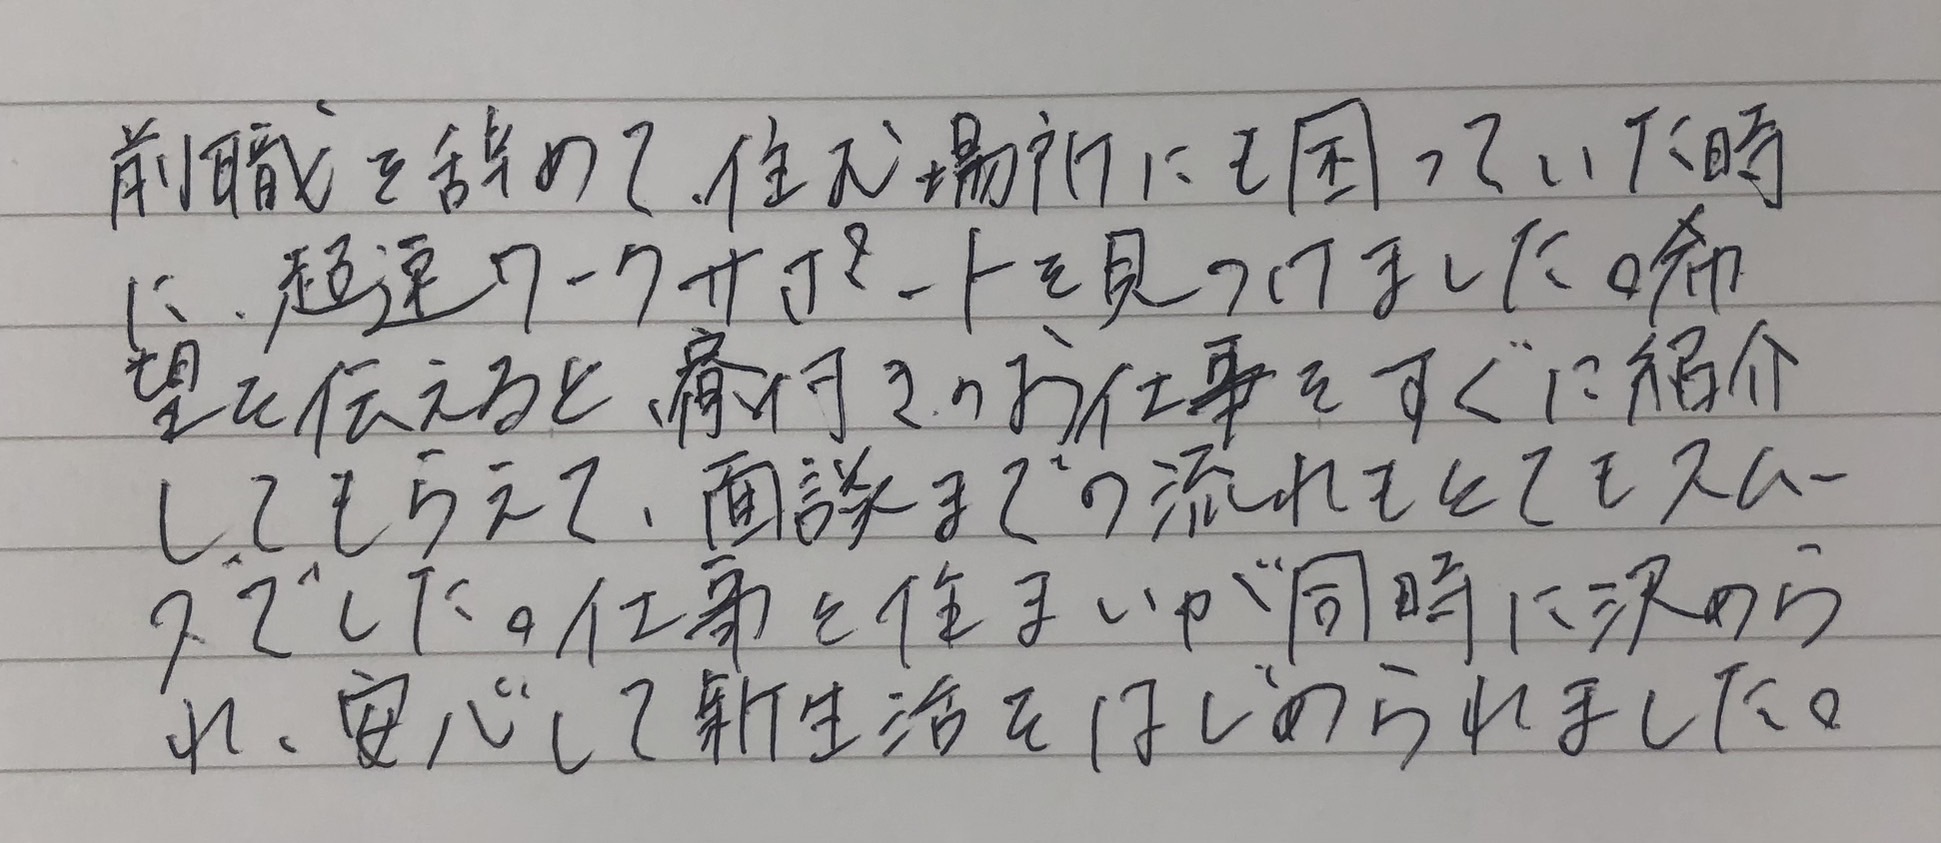 前職を辞めて、住む場所にも困っていた時
に、超速ワークサポートを見つけました。希
望を伝えると、寮付きのお仕事をすぐに紹介
してもらえて、面談までの流れもとてもスムー
ズでした。仕事と住まいが同時に決めら
れ、安心して新生活をはじめられました。